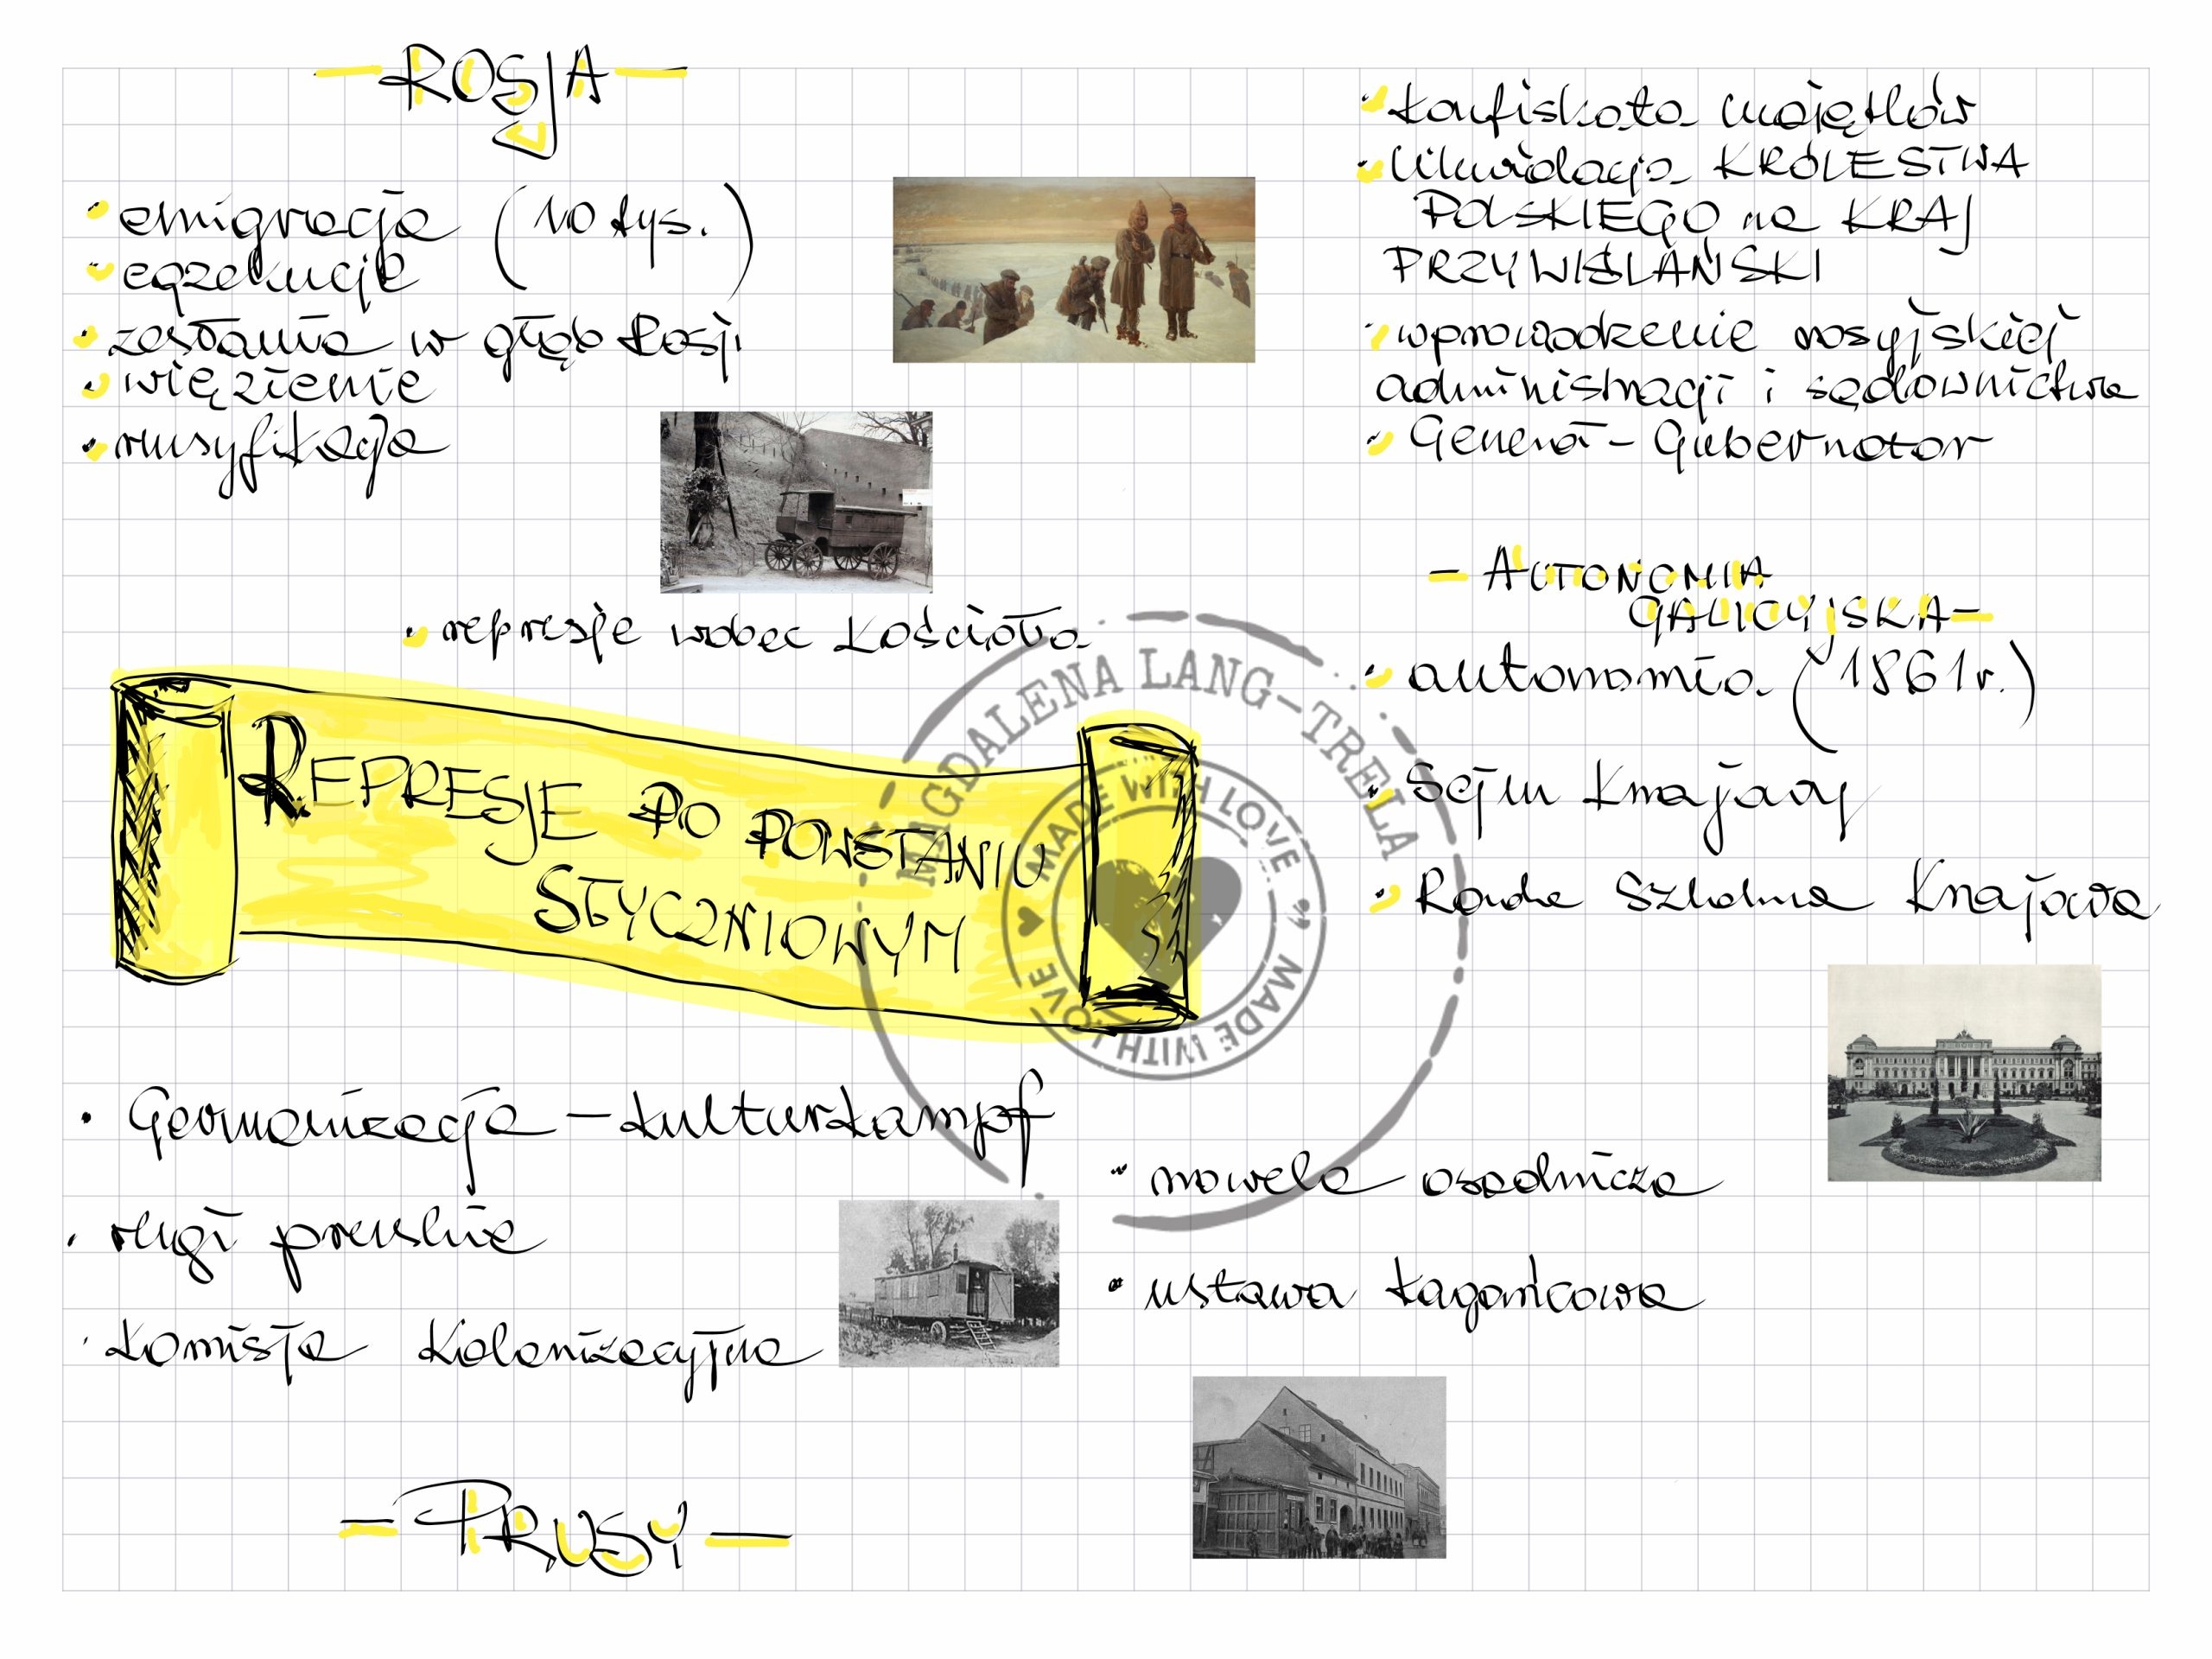 - ROSJA -
• emigracja (10 tys.)
• egzekucje
• zesłania w głąb Rosji
• więzienie
• rusyfikacja
• represje wobec Kościoła
• konfiskata majątków
• likwidacja KRÓLESTWA
POLSKIEGO na KRAJ
PRZYWIŚLAŃSKI
• wprowadzenie rosyjskiej
administracji i sądownictwa
• Generał - Gubernator
- AUTONOMIA
GALICYJSKA -
• autonomia (1861 r.)
• Sejm Krajowy
• Rada Szkolna Krajowa
REPRESJE PO POWSTANIU
STYCZNIOWYM
• Germanizacja - kulturkampf
• rugi pruskie
• komisja kolonizacyjna
• nowela osadnicza
• ustawa kagańcowa
- PRUSY -
MAGDALENA LANG-TRELA
MADE WITH LOVE
MADE WITH LOVE